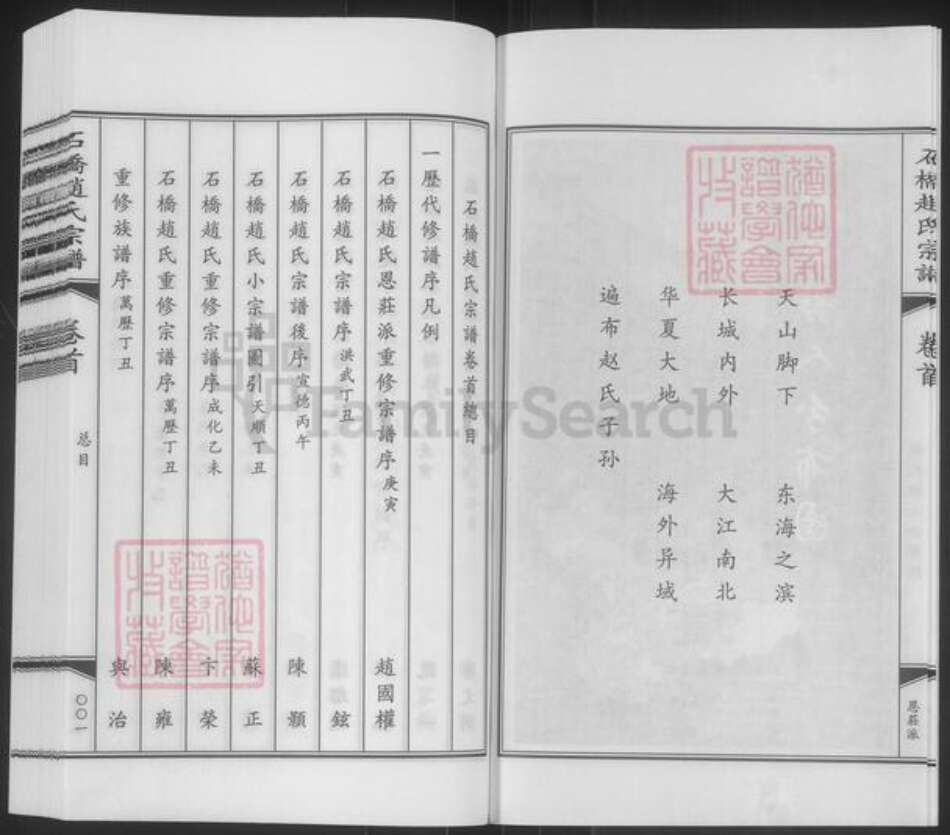 石橋趙氏宗譜
卷首
天山脚下 东海之滨
长城内外 大江南北
华夏大地 海外异域
遍布赵氏子孙
恩莊派
石橋趙氏宗譜卷首總目
一歷代修譜序凡例
石橋趙氏恩莊派重修宗譜序庚寅 趙國權
石橋趙氏宗譜序洪武丁丑 鉉
石橋趙氏宗譜後序宣德丙午 陳顥
石橋趙氏小宗譜圖引天順丁丑 蘇正
石橋趙氏重修宗譜序成化乙未 卞榮
石橋趙氏重修宗譜序萬歷丁丑 陳雍
重修族譜序萬歷丁丑 與治
石橋趙氏宗譜
卷首
总目
〇〇一
FamilySearch